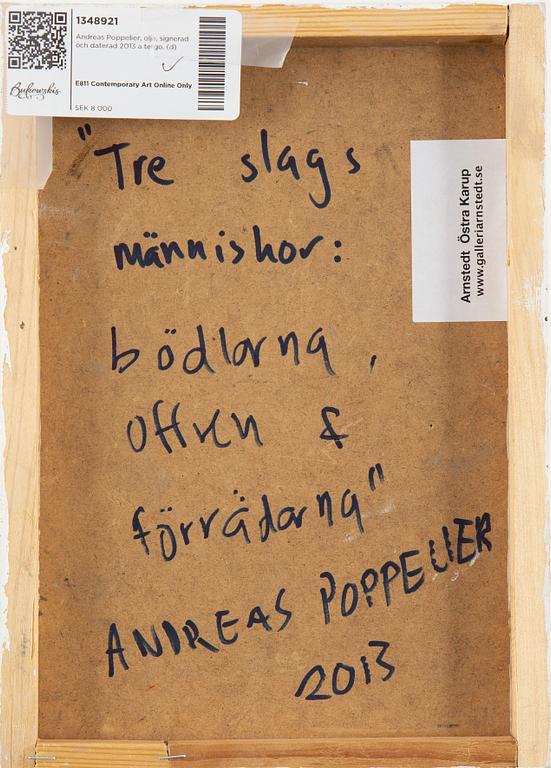 1348921
Andreas Poppelier, olja, signerad
och daterad 2013 a tergo. (d)
Bukowskis
E811 Contemporary Art Online Only
SEK 8 000
Arnstedt Östra Karup
www.galleriarnstedt.se
"Tre slags
människor:
bödlarna,
offren &
förrädarna"
ANDREAS POPPELIER
2013